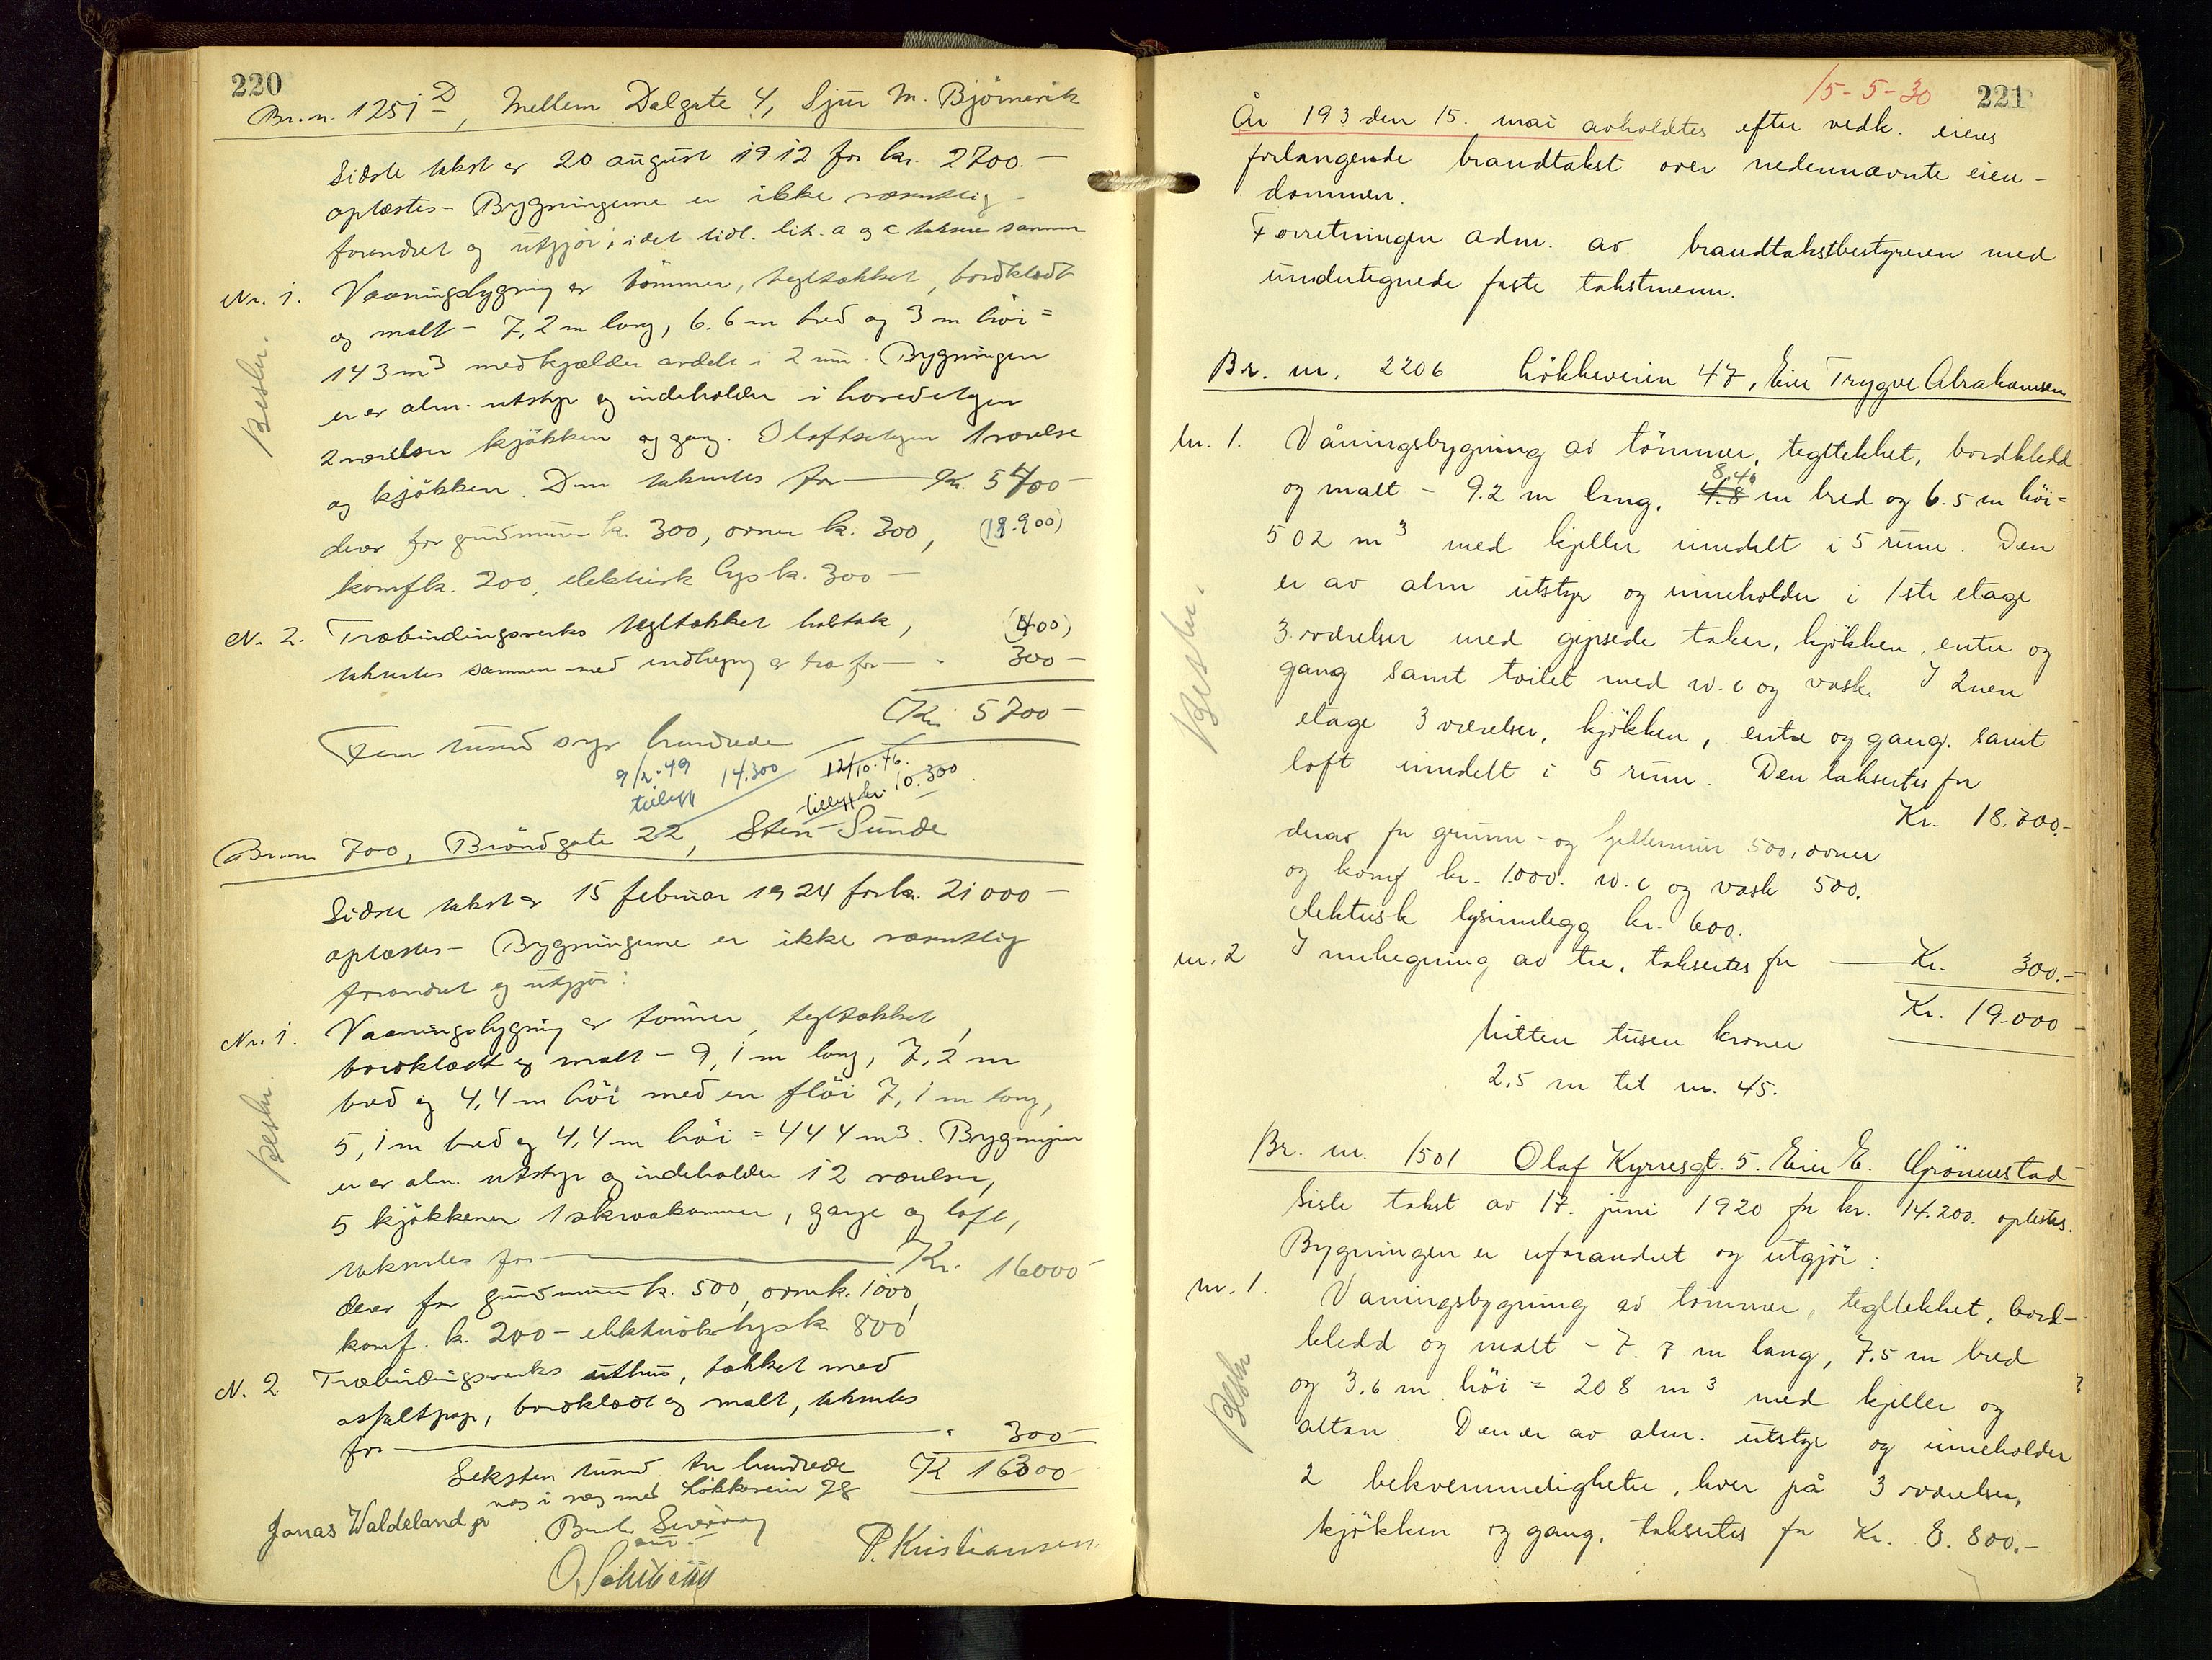 220
Br. n. 1251 D, Mellem Dalgate 4, Sjur M. Björnevik
Sidste takst er 20 august 1912 for kr. 2700.—
oplæstes — Bygningerne er ikke væsentlig
forandret og utgjör, idet tidl. lit. a og c takseres sammen
Nr. 1. Vaaningsbygning av tömmer, tegltækket, bordklædt
og malt — 7,2 m lang, 6.6 m bred og 3 m höi =
143 m3 med kjælder avdelt i 2 rum. Bygningen
er av alm. utstyr og indeholder i hovedetagen
Beskr.
2 værelser kjökken og gang. I loftsetagen 1 værelse
og kjökken. Den taksertes for — Kr. 5400 —
derav for grundmur kr. 300, ovner kr. 300, (19.900)
komf kr. 200, elektrisk lys kr. 300 —
N. 2. Træbindingsverks tegltækket halvtak, (400)
taksertes sammen med indhegning av træ for — " 300 —
Kr. 5700 —
Fem tusend syv hundrede
9/2-49 14.300 12/10-46.
tillegg tillegg kr. 10.300
Br. nr 700, Bröndgate 22, Sten Sunde
Sidste takst av 15 februar 1924 for kr. 21000 —
oplæstes — Bygningerne er ikke væsentlig
forandret og utgjör:
Nr. 1. Vaaningsbygning av tömmer, tegltækket,
bordklædt og malt — 9,1 m lang, 7,2 m
bred og 4,4 m höi med en flöi 7,1 m lang,
Beskr.
5,1 m bred og 4,4 m höi = 444 m3. Bygningen
er av alm. utstyr og indeholder 12 værelser,
5 kjökkener 1 skraakammer, gange og loft,
taksertes for — Kr. 16000 —
derav for grundmur kr. 500, ovner kr. 1000,
komf. kr. 200 — elektrisk lys kr. 800
N. 2. Træbindingsverks uthus, tækket med
asfaltpap, bordklædt og malt, taksertes
for — " 300 —
Seksten tusend tre hundrede K 16300 —
væg i væg med Lökkeveien 78
Jonas Waldeland jr
P. Kristiansen
15-5-30 221
År 193 den 15. mai avholdtes efter vedk. eieres
forlangende brandtakst over nedennævnte eien-
dommer.
Forretningen adm. av brandtakstbestyreren med
undertegnede faste takstmenn.
Br. nr. 2206 Lökkeveien 47, Eier Trygve Abrahamsen
nr. 1. Våningsbygning av tömmer, tegltekket, bordkledd
8.40
og malt — 9.2 m lang, 4.8 m bred og 6.5 m höi =
502 m3 med kjeller inndelt i 5 rum. Den
er av alm utstyr og inneholder i 1ste etage
3 værelser med gipsede taker, kjökken, entre og
Beskr.
gang samt toilet med w.c og vask. I 2nen
etage 3 værelser, kjökken, entre og gang. samt
loft inndelt i 5 rum. Den taksertes for
Kr. 18.700.—
derav for grunn- og kjellermur 500, ovner
og komf kr. 1000. w.c og vask 500.
elektrisk lysinnlegg kr. 600.
nr. 2 Innhegning av tre, taksertes for — Kr. 300.—
Kr. 19.000 —
Nitten tusen kroner
2,5 m til nr. 45.
Br. nr. 1501 Olaf Kyrresgt. 5. Eier E. Grönnestad
Siste takst av 17. juni 1920 for kr. 14.200. oplestes.
Bygningen er uforandret og utgjör:
nr. 1. Våningsbygning av tömmer, tegltekket, bord-
kledd og malt — 7.7 m lang, 7.5 m bred
og 3.6 m höi = 208 m3 med kjeller og
Beskr
altan. Den er av alm. utstyr og inneholder
2 bekvemmeligheter, hver på 3 værelser,
kjökken og gang. taksertes for Kr. 8.800.—